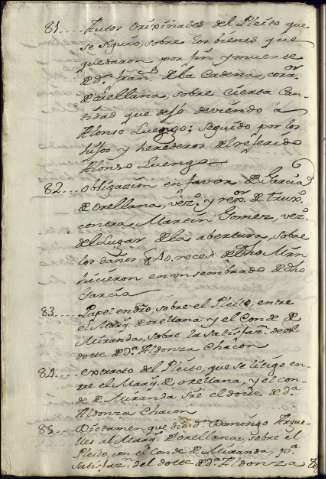 81... Autos originales del Pleito que
se siguio, sobre los bienes que
quedaron por fin y muerte
de Dn. Franco. de la Cadena, Cor.
de Orellana, sobre cierta can
tidad que dejó deviendo à
Alonso Luengo; seguido por los
hijos y herederos del referido
Alonso Luengo
82... obligacion en favor de Garcia
de Orellana, vez.o y rex.or de trux.o
contra Martin Gomez, vez.o
del Lugar de la abertura, sobre
los daños que
hicieron en un sembrado de dho
Garcia
83... Papel en dro, sobre el Pleito, entre
el Marq.s de orellana y el Conde de
Miranda, sobre la satisfaz.n del
dote de D.a Aldonza Chacon
84... extracto del Pleito, que se litigó en
tre el Marq.s de orellana, y el con
de de Miranda sre el dote de D.a
Aldonza Chacon
85... Dictamen que dió dn. Domingo
al Marq.s de Orellana, sobre el
Pleito, con el Conde de Miranda, p.a
satisfaz.n del dote de D.a Aldonza